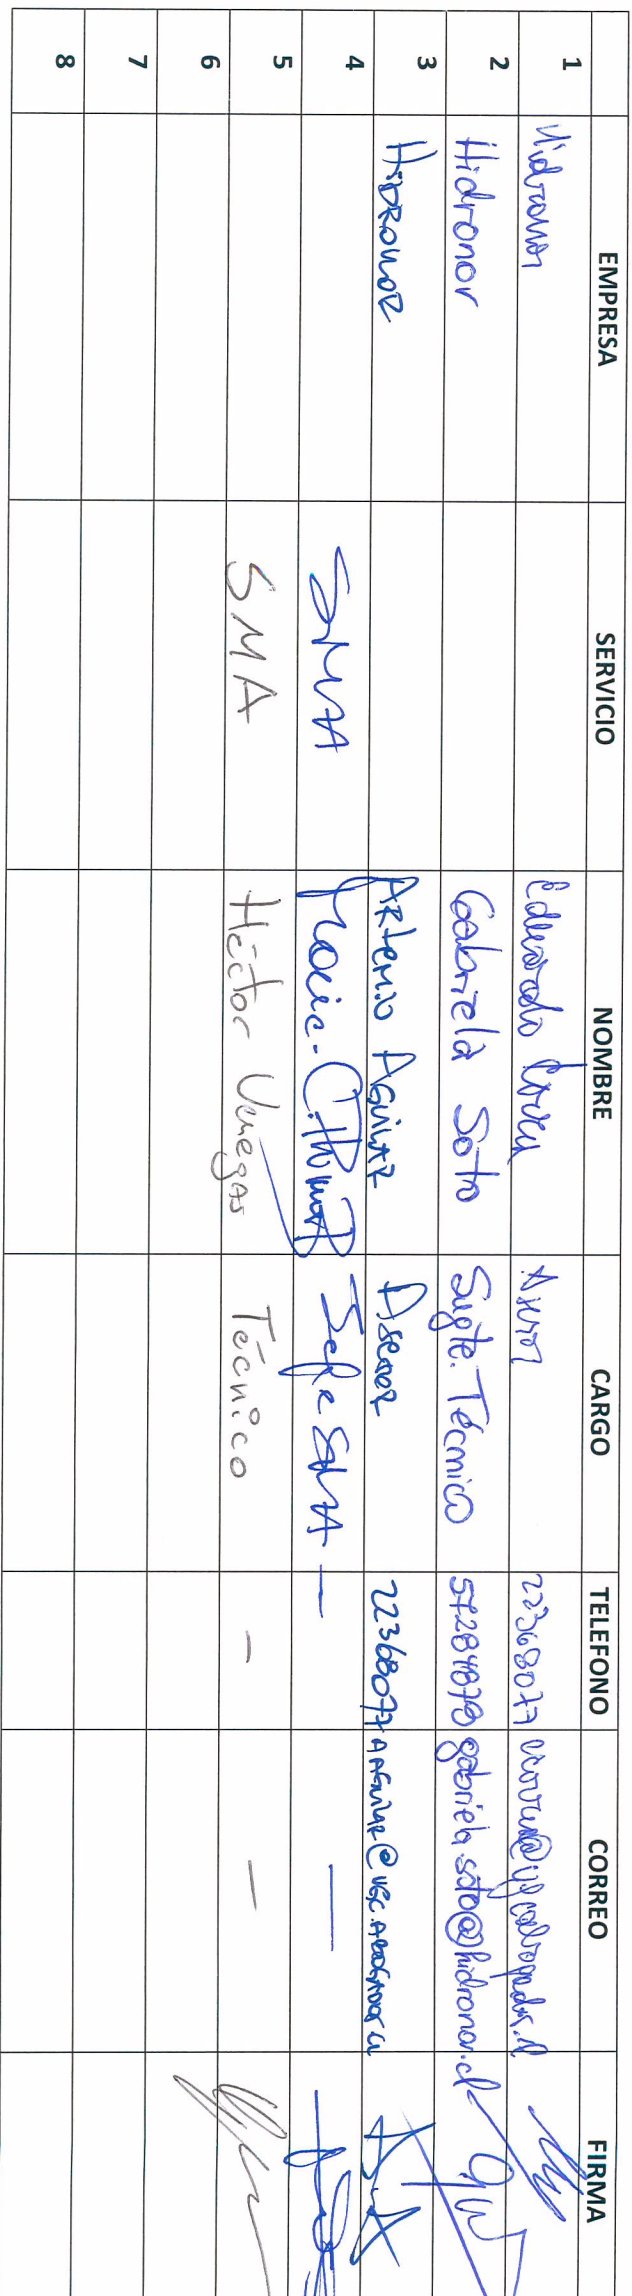 EMPRESA SERVICIO NOMBRE CARGO TELEFONO CORREO FIRMA
1 Hidronor Eduardo Correa Asesor 22368077
2 Hidronor Gabriela Soto Sugte. Técnico 57284878 gabriela.soto@hidronor.cl
3 HIDRONOR ARTEMIO AGUILAR Asesor 22368077 AAGUILAR@VGCABOGADOS.CL
4 SMA Jefe SMA — —
5 SMA Héctor Venegas Técnico — —
6
7
8